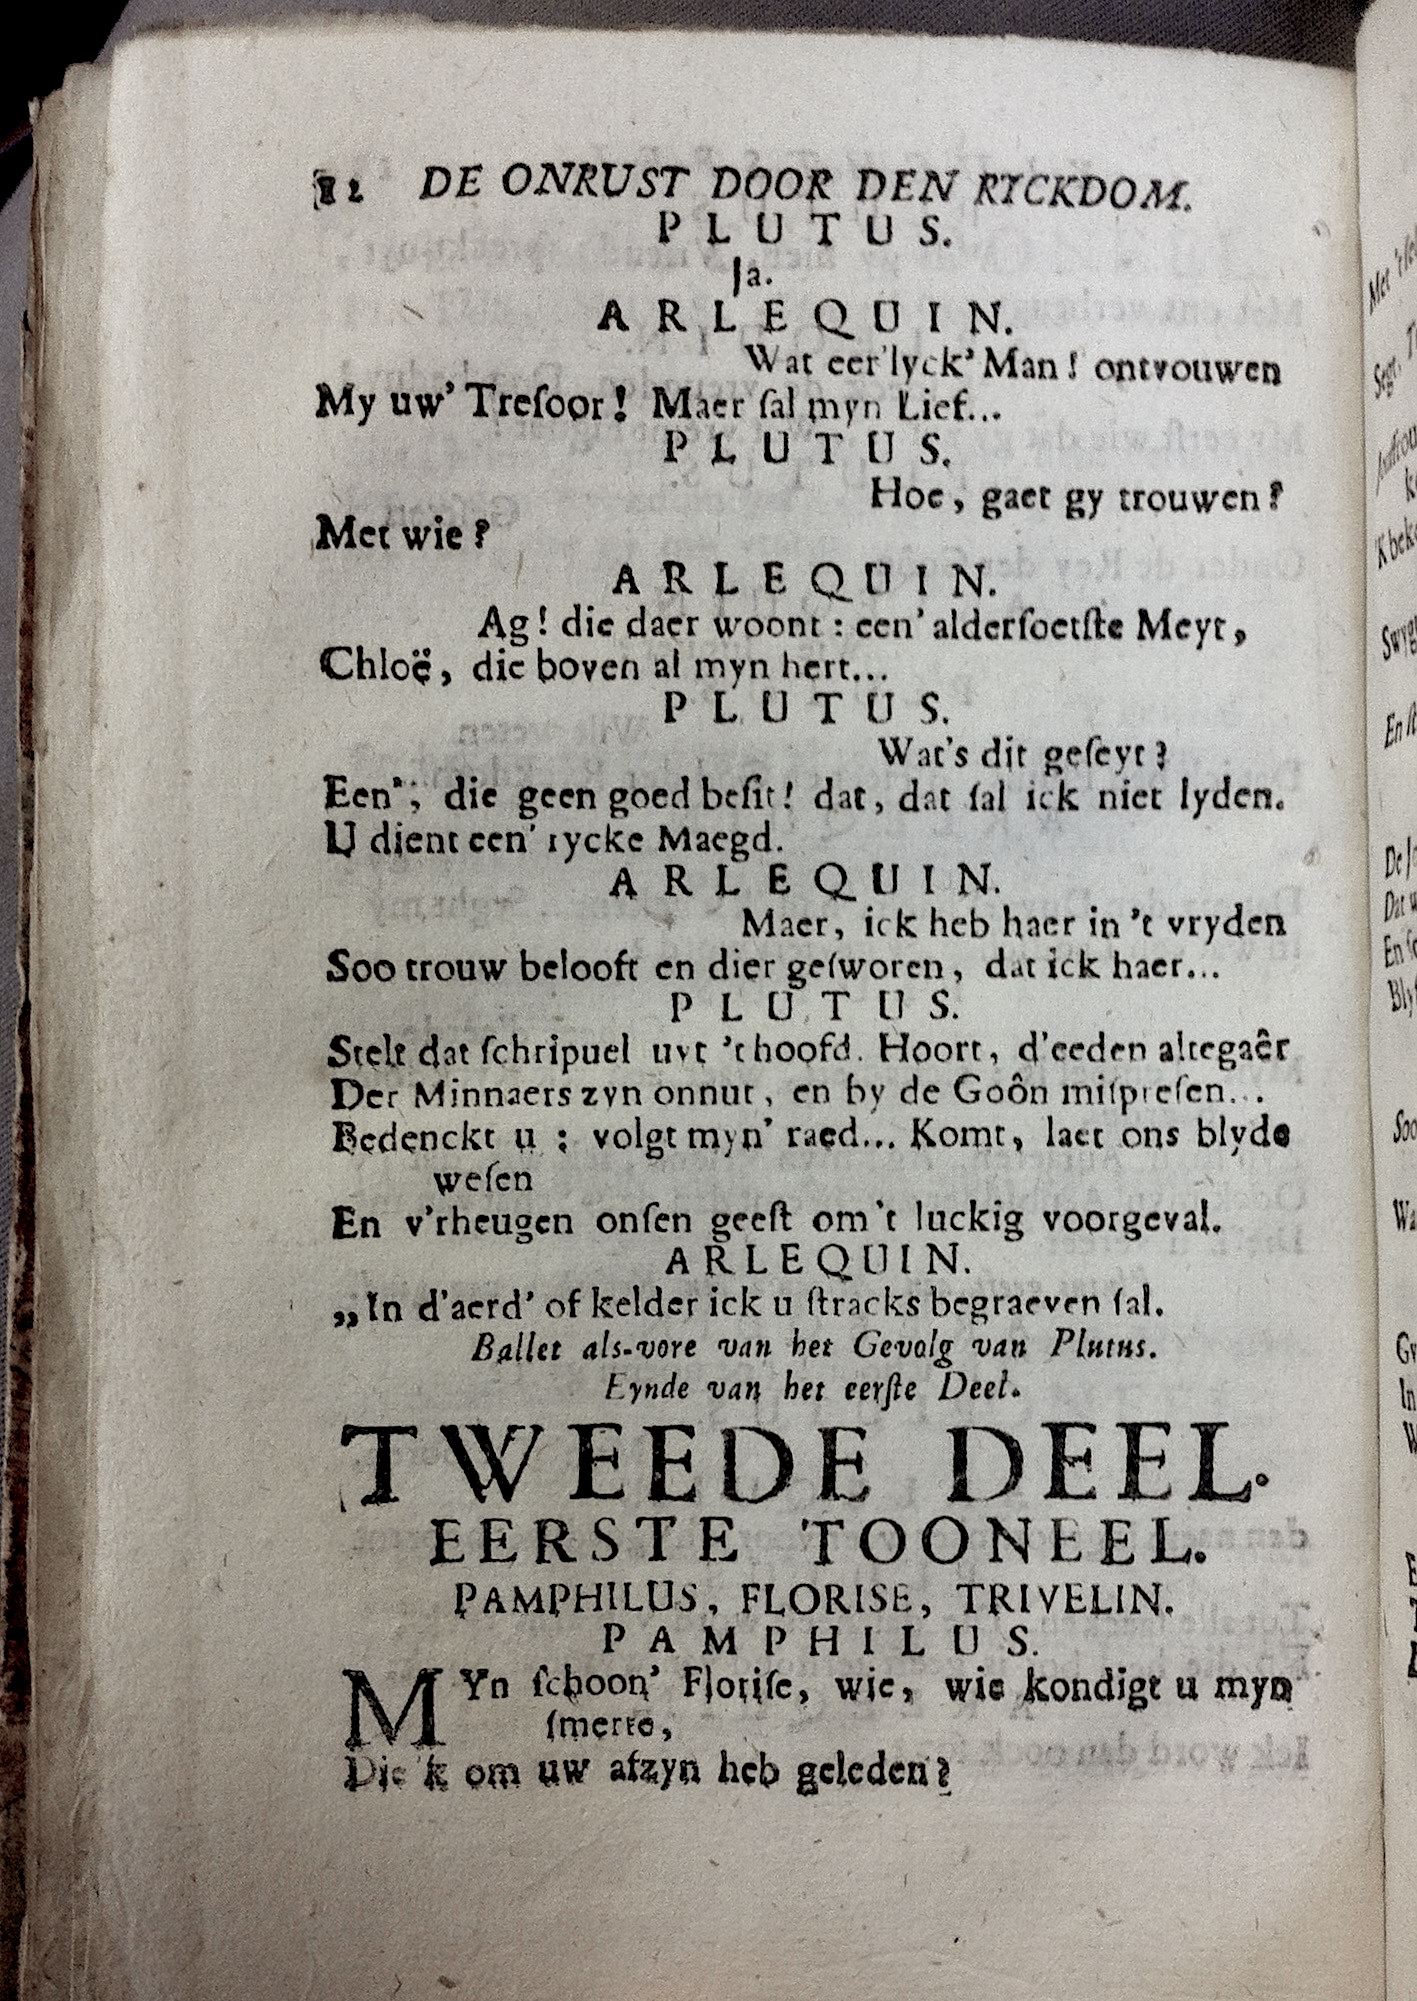 82 DE ONRUST DOOR DEN RYCKDOM.
PLUTUS.
Ja.
ARLEQUIN.
Wat eer'lyck' Man! ontvouwen
My uw' Treſoor! Maer ſal myn Lief...
PLUTUS.
Hoe, gaet gy trouwen?
Met wie?
ARLEQUIN.
Ag! die daer woont: een' alderſoetſte Meyt,
Chloë, die boven al myn hert...
PLUTUS.
Wat's dit geſeyt?
Een', die geen goed beſit! dat, dat ſal ick niet lyden.
U dient een' rycke Maegd.
ARLEQUIN.
Maer, ick heb haer in 't vryden
Soo trouw belooft en dier geſworen, dat ick haer...
PLUTUS.
Stelt dat ſchripuel uyt 't hoofd. Hoort, d'eeden altegaêr
Der Minnaers zyn onnut, en by de Goôn miſpreſen...
Bedenckt u; volgt myn' raed... Komt, laet ons blyde
weſen
En v'rheugen onſen geeſt om 't luckig voorgeval.
ARLEQUIN.
„In d'aerd' of kelder ick u ſtracks begraeven ſal.
Ballet als-vore van het Gevolg van Plutus.
Eynde van het eerſte Deel.
TWEEDE DEEL.
EERSTE TOONEEL.
PAMPHILUS, FLORISE, TRIVELIN.
PAMPHILUS.
MYn ſchoon' Floriſe, wie, wie kondigt u myn
ſmerte,
Die 'k om uw afzyn heb geleden?